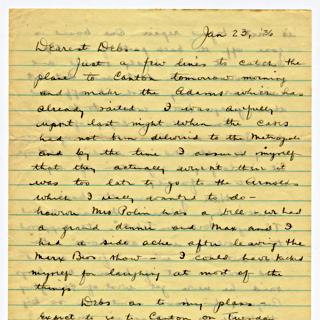 Jan 23, '36
Dearest Debs -
Just a few lines to catch the
plane to Canton tomorrow morning
and make the Adams which has
already sailed. I was awfully
upset last night when the
had not been delivered to the Metropole
and by the time I assured myself
that they actually weren't there it
was too late to go to the Arnolds
which I really wanted to do -
however Mrs Polin was a - we had
a grand dinner and Max and I
had a side ache after leaving the
Marx Bros show - I could have kicked
myself for laughing at most of the
things.
Debs as to my plans -
expect to go to Canton on Tuesday